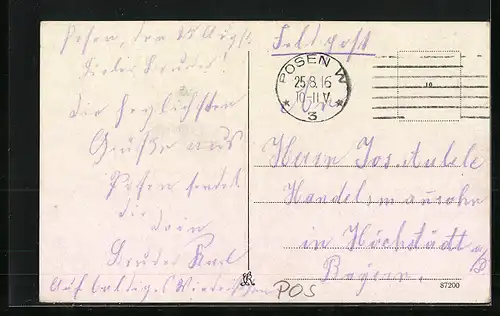 Posen, den 25 Aug.
Lieber Bruder!
Die herzlichsten
Grüße aus
Posen sendet
dir
dein
Bruder Karl
Auf baldiges Wiedersehen
Feldpost
POSEN W
25.8.16
10-11 V
* 3 *
Herrn Jos.
Handelsmannsohn
in Höchstädt a/D
Bayern.
POS
87200